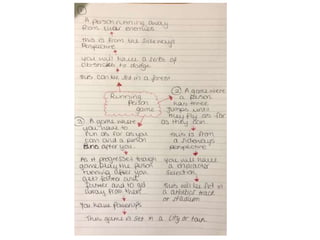 ①
A person running away
from their enemies.
this is from the sideways
perspective
you will have a sets of
obstacles to dodge.
this can be set in a forest.
Running
person
game
② A game where
a person
has three
jumps until
they fly as far
as they can.
this is from
a sideways
perspective
you will have
a character
selection
this will be set in
a athletic track
or stadium
③ A game where
you have to
run as far as you
can and a person
runs after you.
As it progresses though
gameplay the person
running after you
gets faster and
faster and to get
away from them
You have powerups
This game is set in a city or town.